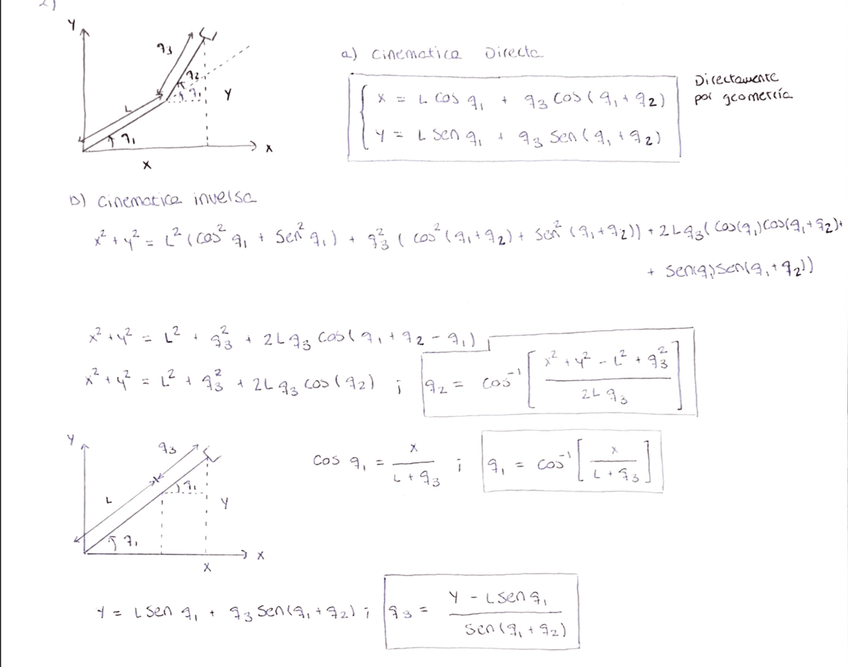 2)
Y
q3
q2
q1
L
Y
q1
X
X
a) Cinematica Directa
X = L Cos q1 + q3 Cos (q1 + q2)
Y = L Sen q1 + q3 Sen (q1 + q2)
Directamente
por geometría
b) Cinematica inversa
x² + y² = L² (Cos² q1 + Sen² q1) + q3² (Cos² (q1+q2) + Sen² (q1+q2)) + 2Lq3 (Cos(q1)Cos(q1+q2)+
+ Sen(q1)Sen(q1+q2))
x² + y² = L² + q3² + 2Lq3 Cos(q1 + q2 - q1)
x² + y² = L² + q3² + 2Lq3 Cos(q2) ; q2 = Cos⁻¹ [ (x² + y² - L² + q3²) / (2Lq3) ]
Y
q3
L
q1
Y
q1
X
X
Cos q1 = X / (L + q3) ; q1 = Cos⁻¹ [ X / (L + q3) ]
Y = L Sen q1 + q3 Sen(q1 + q2) ; q3 = (Y - L Sen q1) / (Sen (q1 + q2))